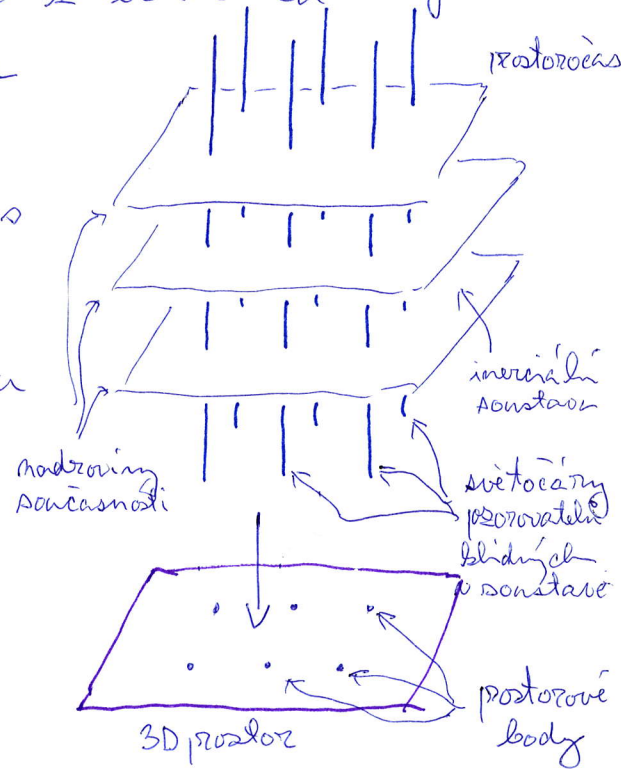 prostoročas
inerciální
soustava
nadroviny
současnosti
světočáry
pozorovatelů
klidných
v soustavě
prostorové
body
3D prostor